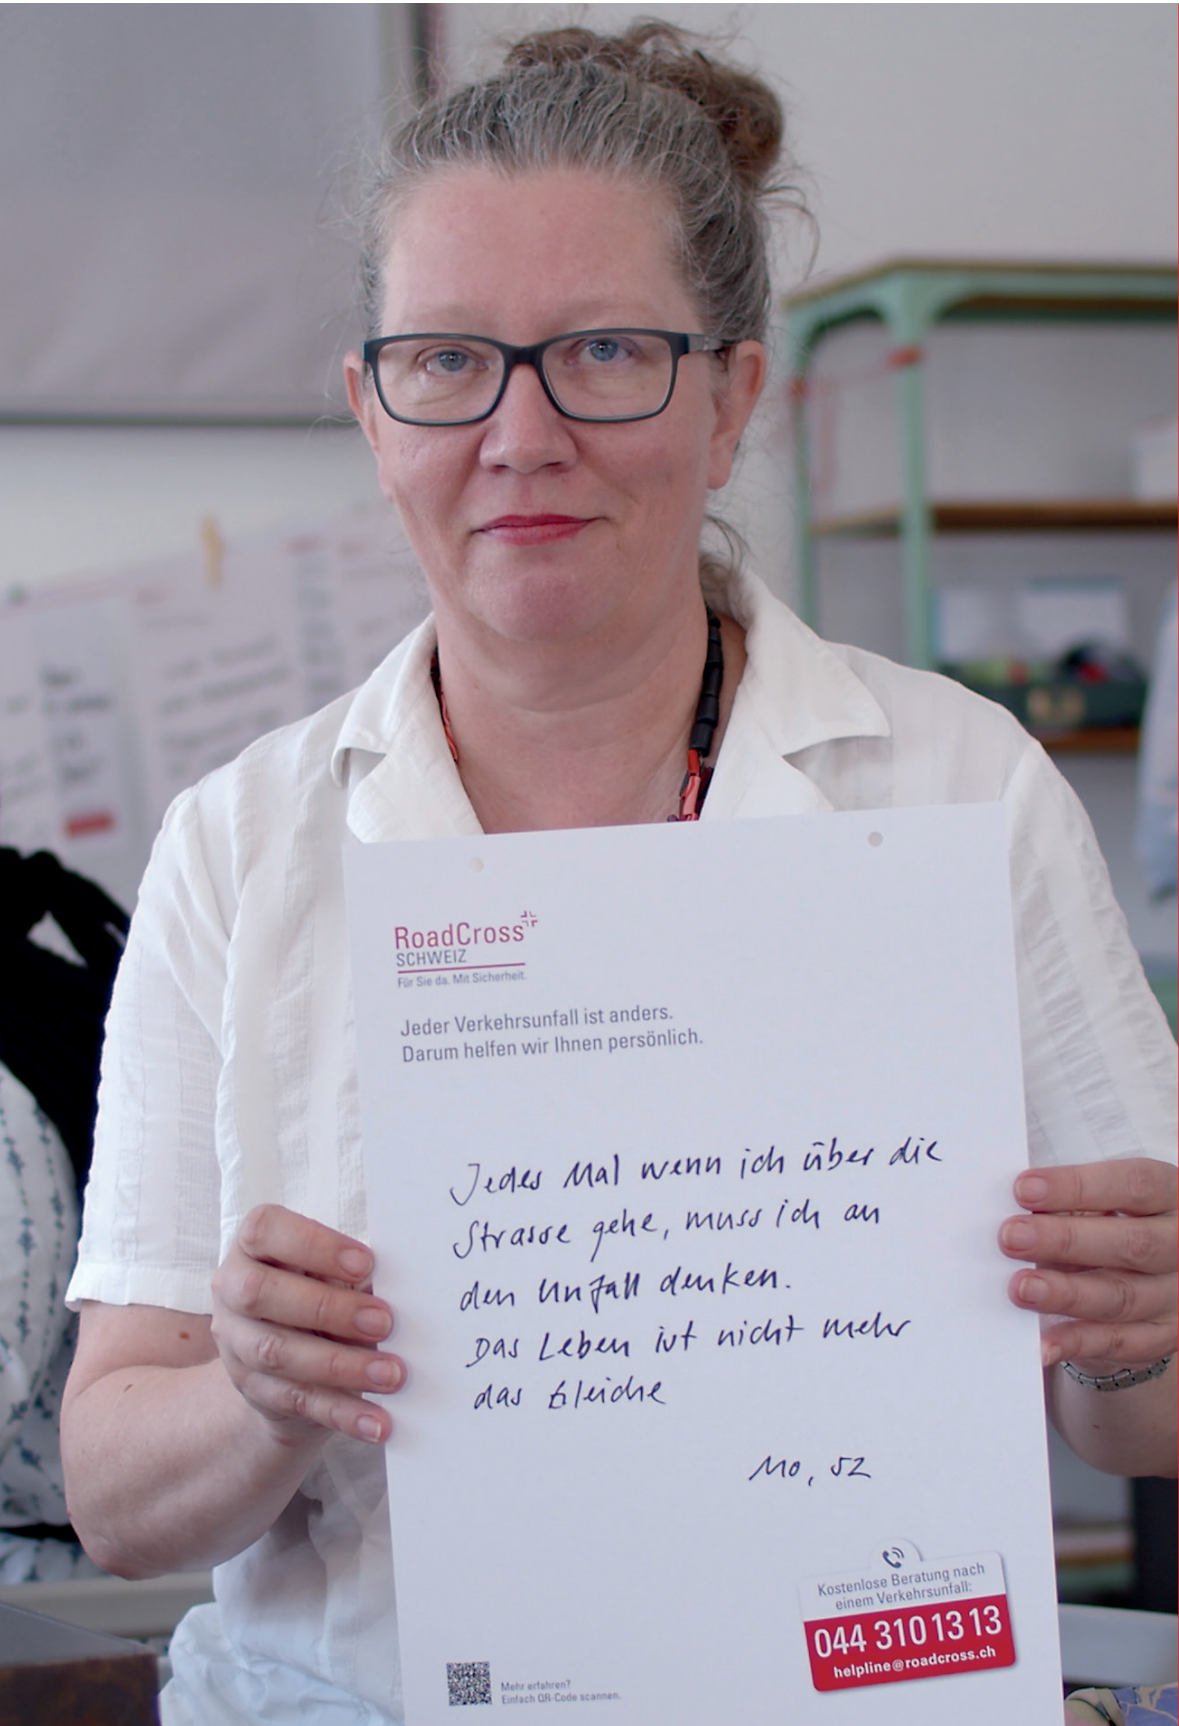 RoadCross
SCHWEIZ
Für Sie da. Mit Sicherheit.
Jeder Verkehrsunfall ist anders.
Darum helfen wir Ihnen persönlich.
Jedes Mal wenn ich über die
Strasse gehe, muss ich an
den Unfall denken.
Das Leben ist nicht mehr
das Gleiche
Mo, 52
Kostenlose Beratung nach
einem Verkehrsunfall:
044 310 13 13
helpline@roadcross.ch
Mehr erfahren?
Einfach QR-Code scannen.